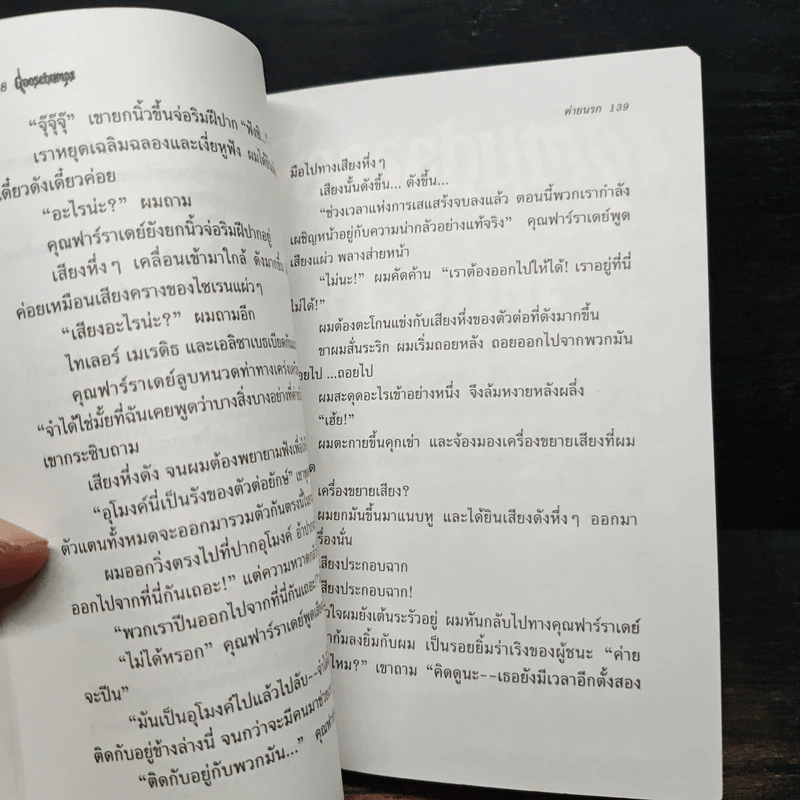 8 Goosebumps
“จุ๊จุ๊จุ๊” เขายกนิ้วขึ้นจ่อริมฝีปาก “ฟังซิ...”
เราหยุดเฉลิมฉลองและเงี่ยหูฟัง ผมได้ยิน
เดี๋ยวดังเดี๋ยวค่อย
“อะไรน่ะ?” ผมถาม
คุณฟาร์ราเดย์ยังยกนิ้วจ่อริมฝีปากอยู่
เสียงหึ่งๆ เคลื่อนเข้ามาใกล้ ดังมากขึ้น
ค่อยเหมือนเสียงครางของไซเรนแผ่วๆ
“เสียงอะไรน่ะ?” ผมถามอีก
ไทเลอร์ เมเรดิธ และเอลิชาเบธเบียดกัน
คุณฟาร์ราเดย์ลูบหนวดท่าทางเคร่ง
“จำได้ใช่มั้ยที่ฉันเคยพูดว่าบางสิ่งบางอย่างที่
เขากระซิบถาม
เสียงหึ่งดัง จนผมต้องพยายามฟังเพื่อ
“อุโมงค์นี่เป็นรังของตัวต่อยักษ์”
ตัวแตนทั้งหมดจะออกมารวมตัวกันตรงนี้
ผมออกวิ่งตรงไปที่ปากอุโมงค์
ออกไปจากที่นี่กันเถอะ!” แต่ความหวาด
“พวกเราปีนออกไปจากที่นี่กันเถอะ!”
“ไม่ได้หรอก” คุณฟาร์ราเดย์พูด
จะปีน”
“มันเป็นอุโมงค์ไปแล้วไปลับ--จำ
ติดกับอยู่ข้างล่างนี่ จนกว่าจะมีคนมาช่วย
“ติดกับอยู่กับพวกมัน...”
ค่ายนรก 139
มือไปทางเสียงหึ่งๆ
เสียงนั้นดังขึ้น... ดังขึ้น...
“ช่วงเวลาแห่งการเสแสร้งจบลงแล้ว ตอนนี้พวกเรากำลัง
เผชิญหน้าอยู่กับความน่ากลัวอย่างแท้จริง” คุณฟาร์ราเดย์พูด
เสียงแผ่ว พลางส่ายหน้า
“ไม่นะ!” ผมคัดค้าน “เราต้องออกไปให้ได้! เราอยู่ที่นี่
ไม่ได้!”
ผมต้องตะโกนแข่งกับเสียงหึ่งของตัวต่อที่ดังมากขึ้น
ขาผมสั่นระริก ผมเริ่มถอยหลัง ถอยออกไปจากพวกมัน
อยไป ...ถอยไป
ผมสะดุดอะไรเข้าอย่างหนึ่ง จึงล้มหงายหลังผลึ่ง
“เฮ้ย!”
ผมตะกายขึ้นคุกเข่า และจ้องมองเครื่องขยายเสียงที่ผม
ด
เครื่องขยายเสียง?
ผมยกมันขึ้นมาแนบหู และได้ยินเสียงดังหึ่งๆ ออกมา
รื่องนั่น
สียงประกอบฉาก
สียงประกอบฉาก!
ัวใจผมยังเต้นระรัวอยู่ ผมหันกลับไปทางคุณฟาร์ราเดย์
าก้มลงยิ้มกับผม เป็นรอยยิ้มร่าเริงของผู้ชนะ “ค่าย
ไหม?” เขาถาม “คิดดูนะ--เธอยังมีเวลาอีกตั้งสอง